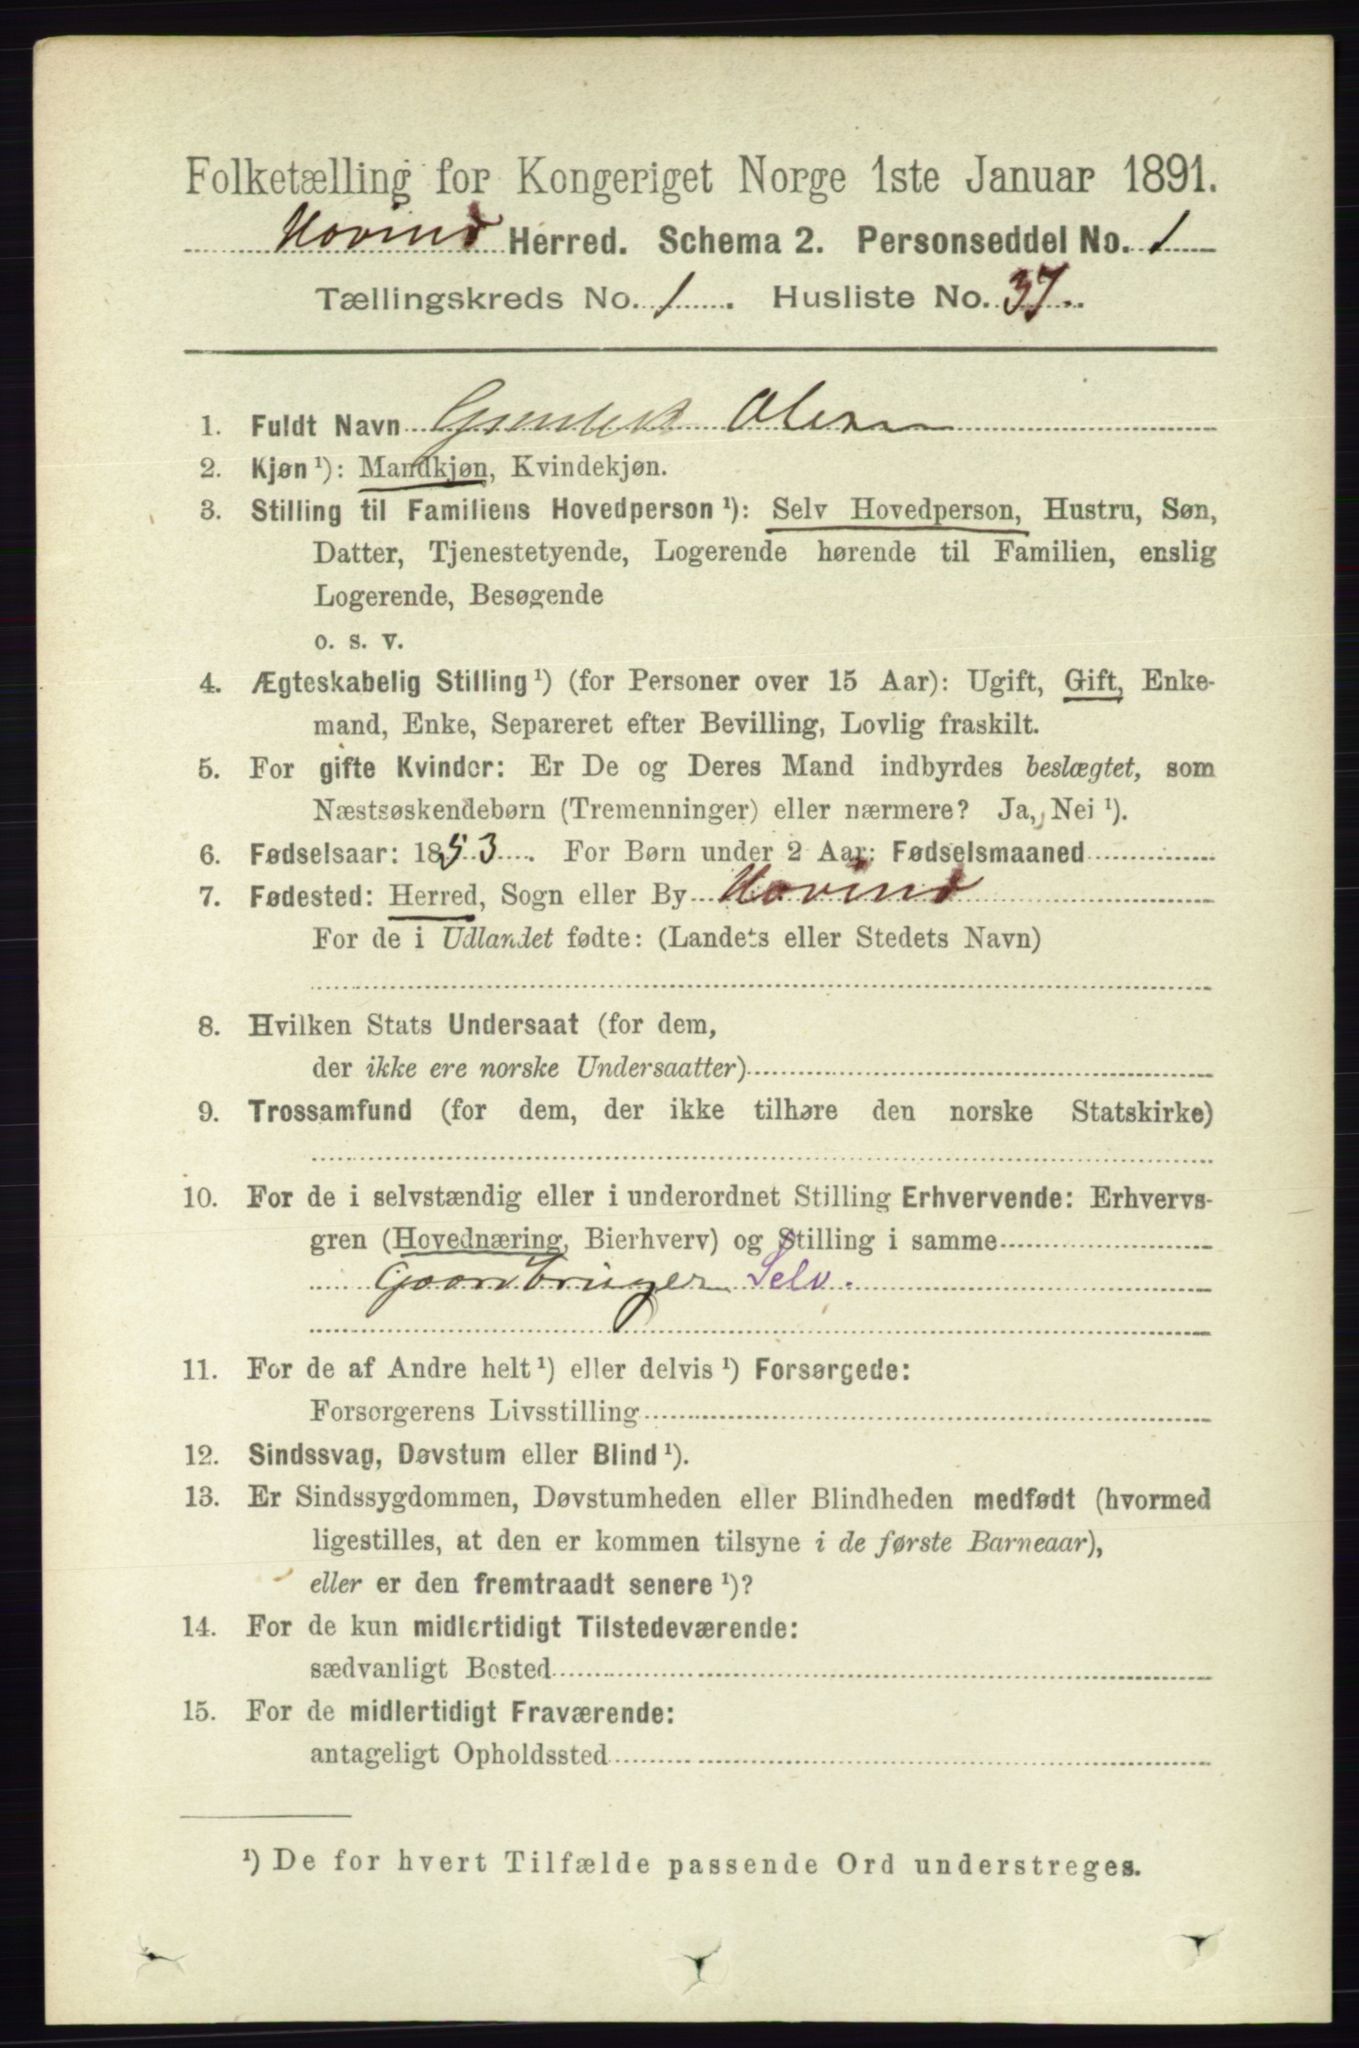 Folketælling for Kongeriget Norge 1ste Januar 1891.
Hovind Herred. Schema 2. Personseddel No. 1
Tællingskreds No. 1. Husliste No. 37.
1. Fuldt Navn Olsen
2. Kjøn ¹): Mandkjøn, Kvindekjøn.
3. Stilling til Familiens Hovedperson ¹): Selv Hovedperson, Hustru, Søn,
Datter, Tjenestetyende, Logerende hørende til Familien, enslig
Logerende, Besøgende
o. s. v.
4. Ægteskabelig Stilling ¹) (for Personer over 15 Aar): Ugift, Gift, Enke-
mand, Enke, Separeret efter Bevilling, Lovlig fraskilt.
5. For gifte Kvinder: Er De og Deres Mand indbyrdes beslægtet, som
Næstsøskendebørn (Tremenninger) eller nærmere? Ja, Nei ¹).
6. Fødselsaar: 1853. For Børn under 2 Aar: Fødselsmaaned
7. Fødested: Herred, Sogn eller By Hovind
For de i Udlandet fødte: (Landets eller Stedets Navn)
8. Hvilken Stats Undersaat (for dem,
der ikke ere norske Undersaatter)
9. Trossamfund (for dem, der ikke tilhøre den norske Statskirke)
10. For de i selvstændig eller i underordnet Stilling Erhvervende: Erhvervs-
gren (Hovednæring, Bierhverv) og Stilling i samme
Gaardbruger Selv.
11. For de af Andre helt ¹) eller delvis ¹) Forsørgede:
Forsørgerens Livsstilling
12. Sindssvag, Døvstum eller Blind ¹).
13. Er Sindssygdommen, Døvstumheden eller Blindheden medfødt (hvormed
ligestilles, at den er kommen tilsyne i de første Barneaar),
eller er den fremtraadt senere ¹)?
14. For de kun midlertidigt Tilstedeværende:
sædvanligt Bosted
15. For de midlertidigt Fraværende:
antageligt Opholdssted
¹) De for hvert Tilfælde passende Ord understreges.